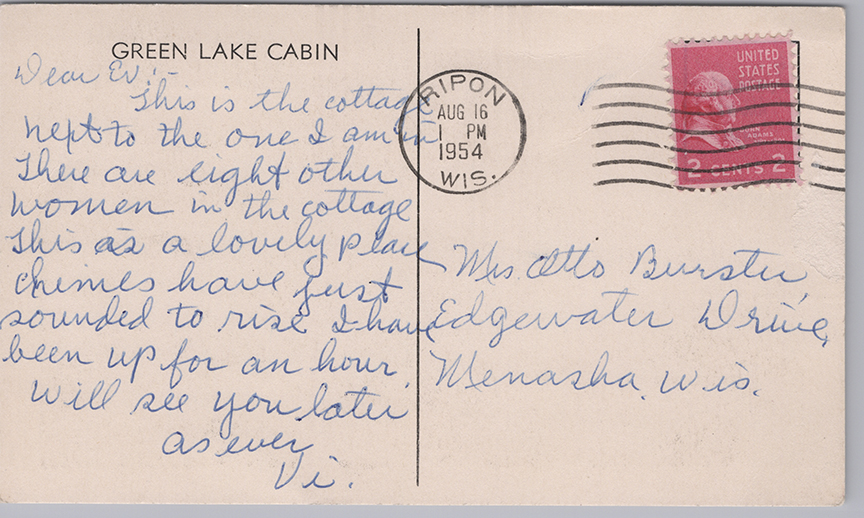 GREEN LAKE CABIN
Dear Ev:-
This is the cottage
next to the one I am in
There are eight other
women in the cottage
This is a lovely place
chimes have just
sounded to rise I have
been up for an hour
will see you later
as ever
Vi.
RIPON
AUG 16
1 PM
1954
WIS.
UNITED
STATES
POSTAGE
JOHN
ADAMS
2 CENTS 2
Mrs Otto Burster
Edgewater Drive,
Menasha, Wis.